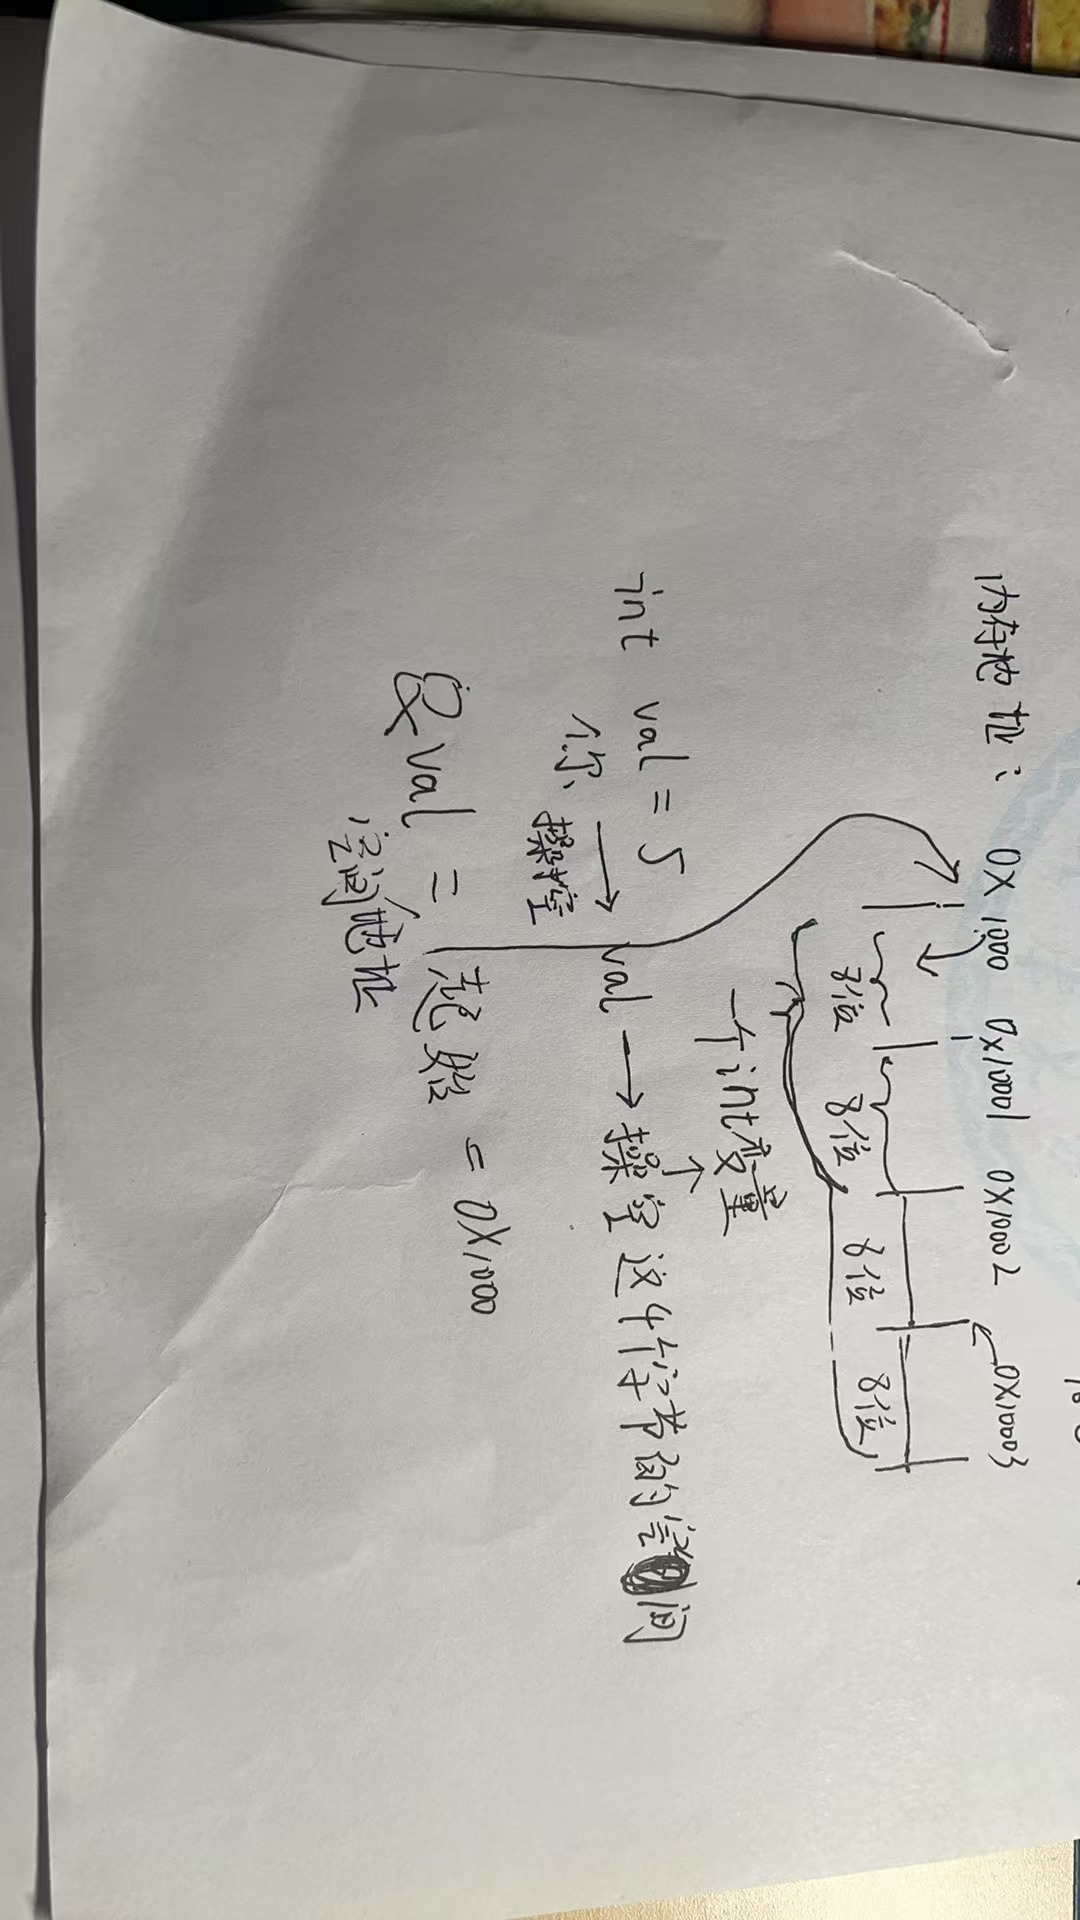 内存地址: 0X1000 0X1001 0X1002 0X1003
8位 8位 8位 8位
一个int变量
int val = 5 val → 操空这4个字节的空间
你 操控
&val = 起始 = 0X1000
空间地址